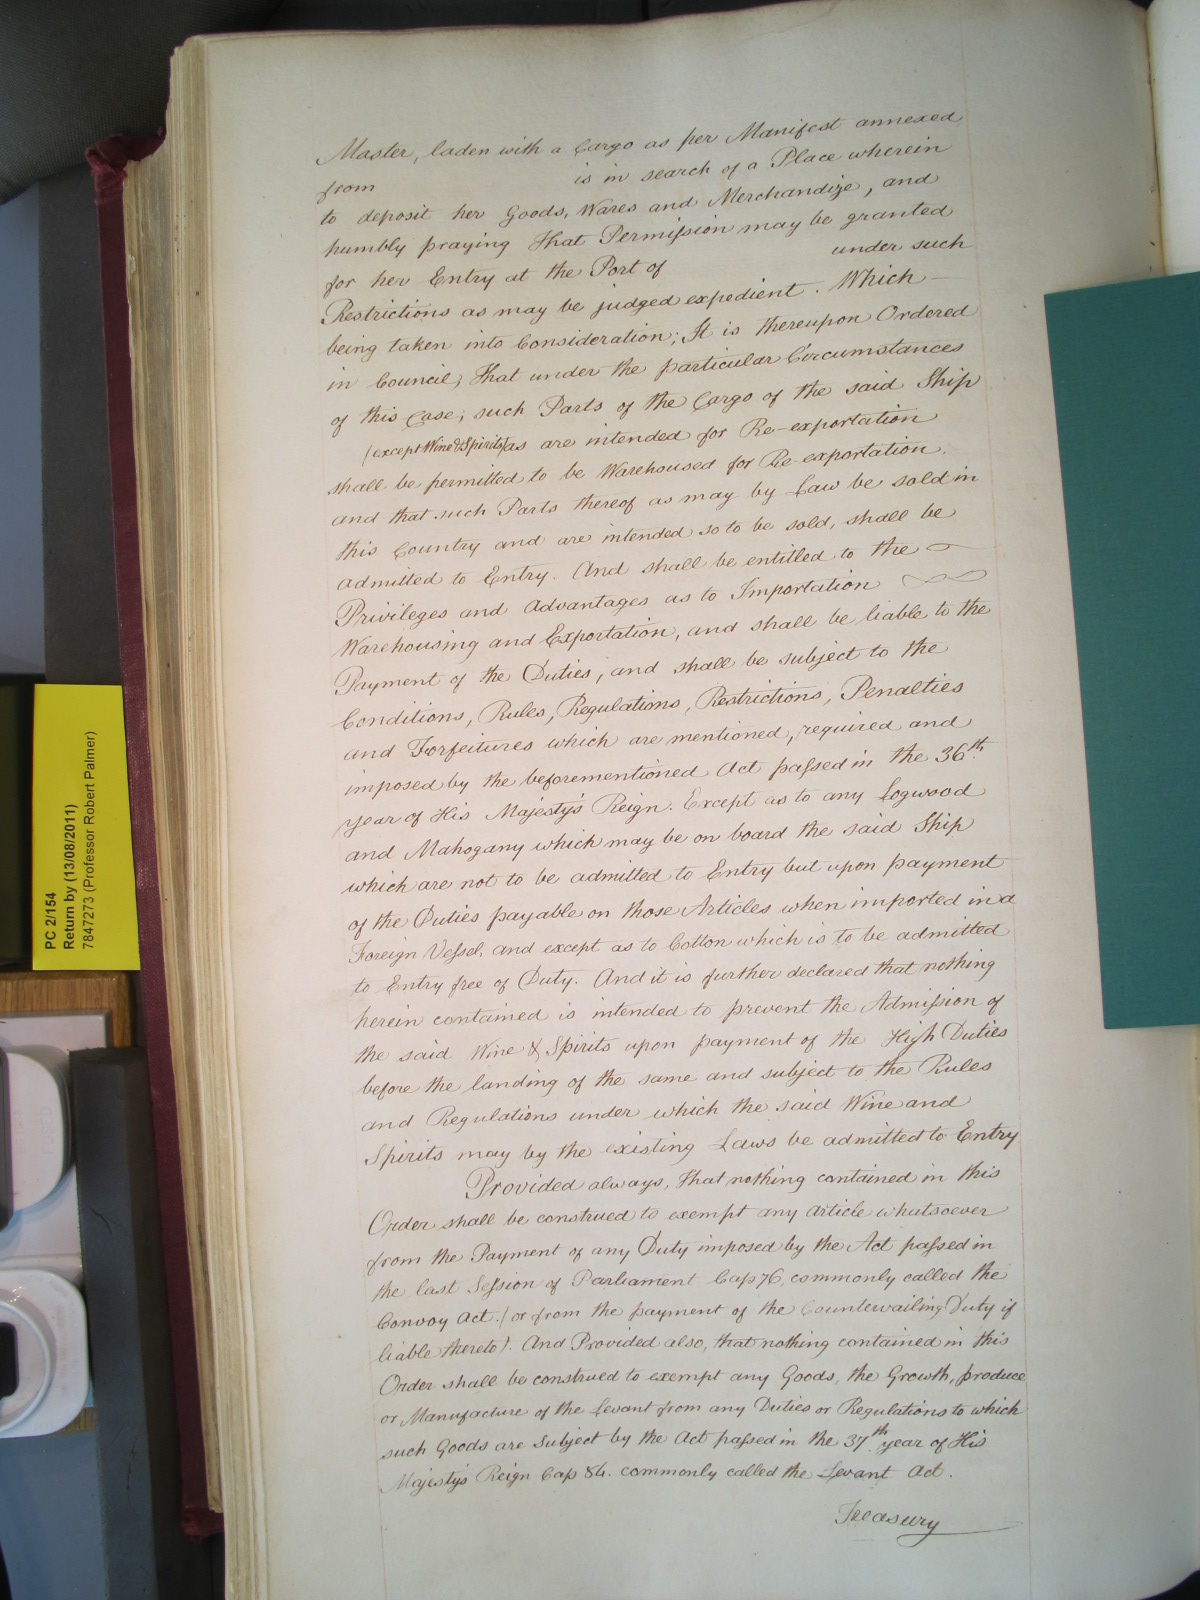 Master, laden with a Cargo as per Manifest annexed
from is in search of a Place wherein
to deposit her Goods, Wares and Merchandize, and
humbly praying that Permission may be granted
for her Entry at the Port of under such
Restrictions as may be judged expedient. Which
being taken into Consideration; It is thereupon Ordered
in Council, that under the particular Circumstances
of this Case; such Parts of the Cargo of the said Ship
(except Wine & Spirits) as are intended for Re-exportation
shall be permitted to be Warehoused for Re-exportation,
and that such Parts thereof as may by Law be sold in
this Country and are intended so to be sold, shall be
admitted to Entry. And shall be entitled to the
Privileges and Advantages as to Importation
Warehousing and Exportation, and shall be liable to the
Payment of the Duties, and shall be subject to the
Conditions, Rules, Regulations, Restrictions, Penalties
and Forfeitures which are mentioned, required and
imposed by the beforementioned Act passed in the 36th.
year of His Majesty's Reign. Except as to any Logwood
and Mahogany which may be on board the said Ship
which are not to be admitted to Entry but upon payment
of the Duties payable on those Articles when imported in a
Foreign Vessel, and except as to Cotton which is to be admitted
to Entry free of Duty. And it is further declared that nothing
herein contained is intended to prevent the Admission of
the said Wine & Spirits upon payment of the High Duties
before the landing of the same and subject to the Rules
and Regulations under which the said Wine and
Spirits may by the existing Laws be admitted to Entry
Provided always, that nothing contained in this
Order shall be construed to exempt any article whatsoever
from the Payment of any Duty imposed by the Act passed in
the last Session of Parliament Cap 76, commonly called the
Convoy Act. (or from the payment of the Countervailing Duty if
liable thereto). And Provided also, that nothing contained in this
Order shall be construed to exempt any Goods, the Growth, produce
or Manufacture of the Levant from any Duties or Regulations to which
such Goods are Subject by the Act passed in the 37th. year of His
Majesty's Reign Cap 84. commonly called the Levant Act.
Treasury
PC 2/154
Return by (13/08/2011)
7847273 (Professor Robert Palmer)